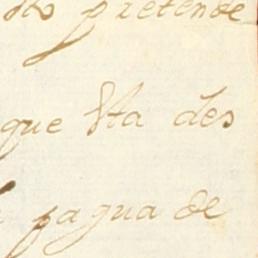 dto pretende
que Vta des
fagua de